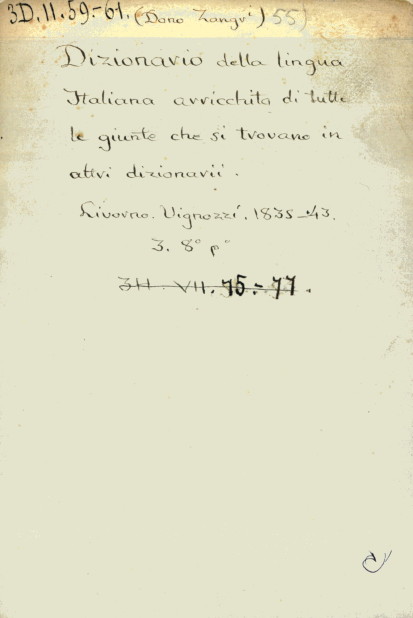 3D.11.59.-61. (Dono Zangri) 55)
Dizionario della lingua
Italiana arricchita di tutte
le giunte che si trovano in
altri dizionarii.
Livorno. Vignozzi. 1835-43.
3. 8° p°
3H. VII. 75.-77.